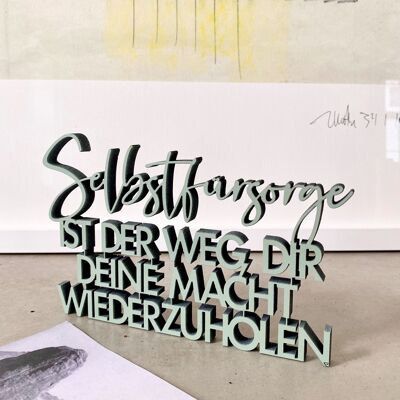 Selbstfürsorge
IST DER WEG, DIR
DEINE MACHT
WIEDERZUHOLEN